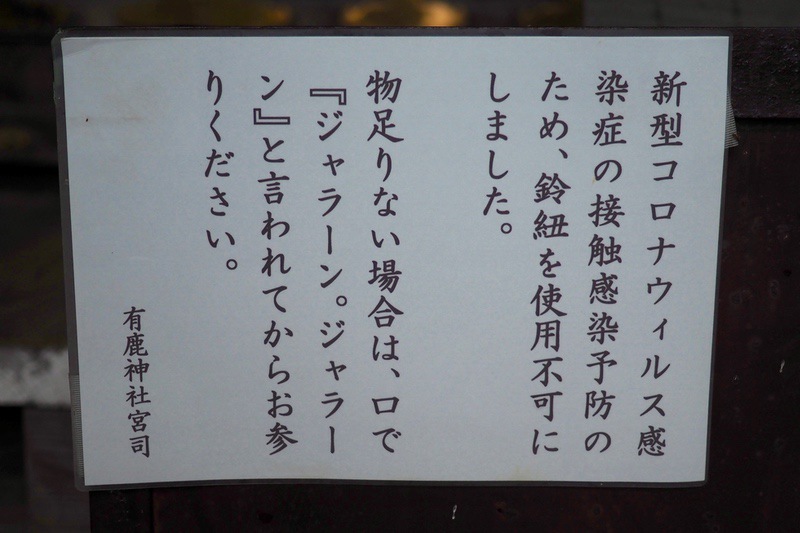 新型コロナウィルス感
染症の接触感染予防の
ため、鈴紐を使用不可に
しました。
物足りない場合は、口で
『ジャラーン。ジャラー
ン』と言われてからお参
りください。
有鹿神社宮司